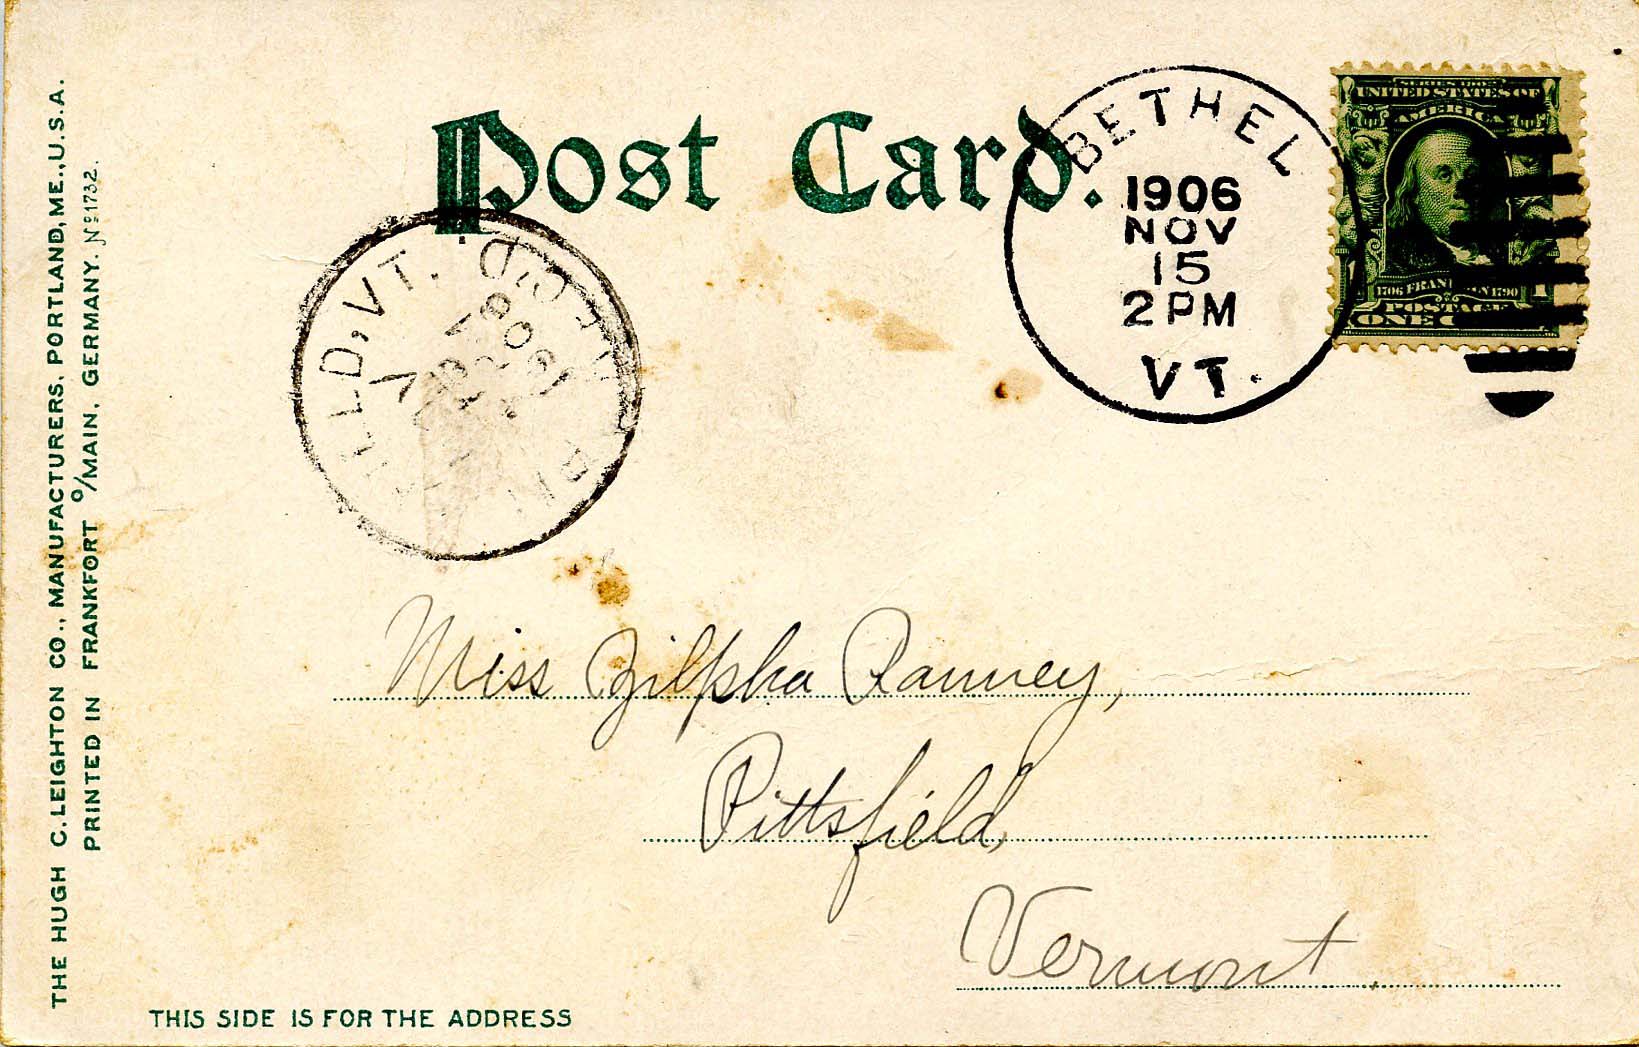 Post Card.
BETHEL
1906
NOV
15
2 PM
VT.
UNITED STATES OF
AMERICA
1706 FRANKLIN 1790
POSTAGE
ONE
REC'D.
1906
VT.
Miss Zilpha Ranney,
Pittsfield,
Vermont
THIS SIDE IS FOR THE ADDRESS
THE HUGH C. LEIGHTON CO., MANUFACTURERS, PORTLAND, ME., U.S.A.
PRINTED IN FRANKFORT º/MAIN, GERMANY. Nº 1732.